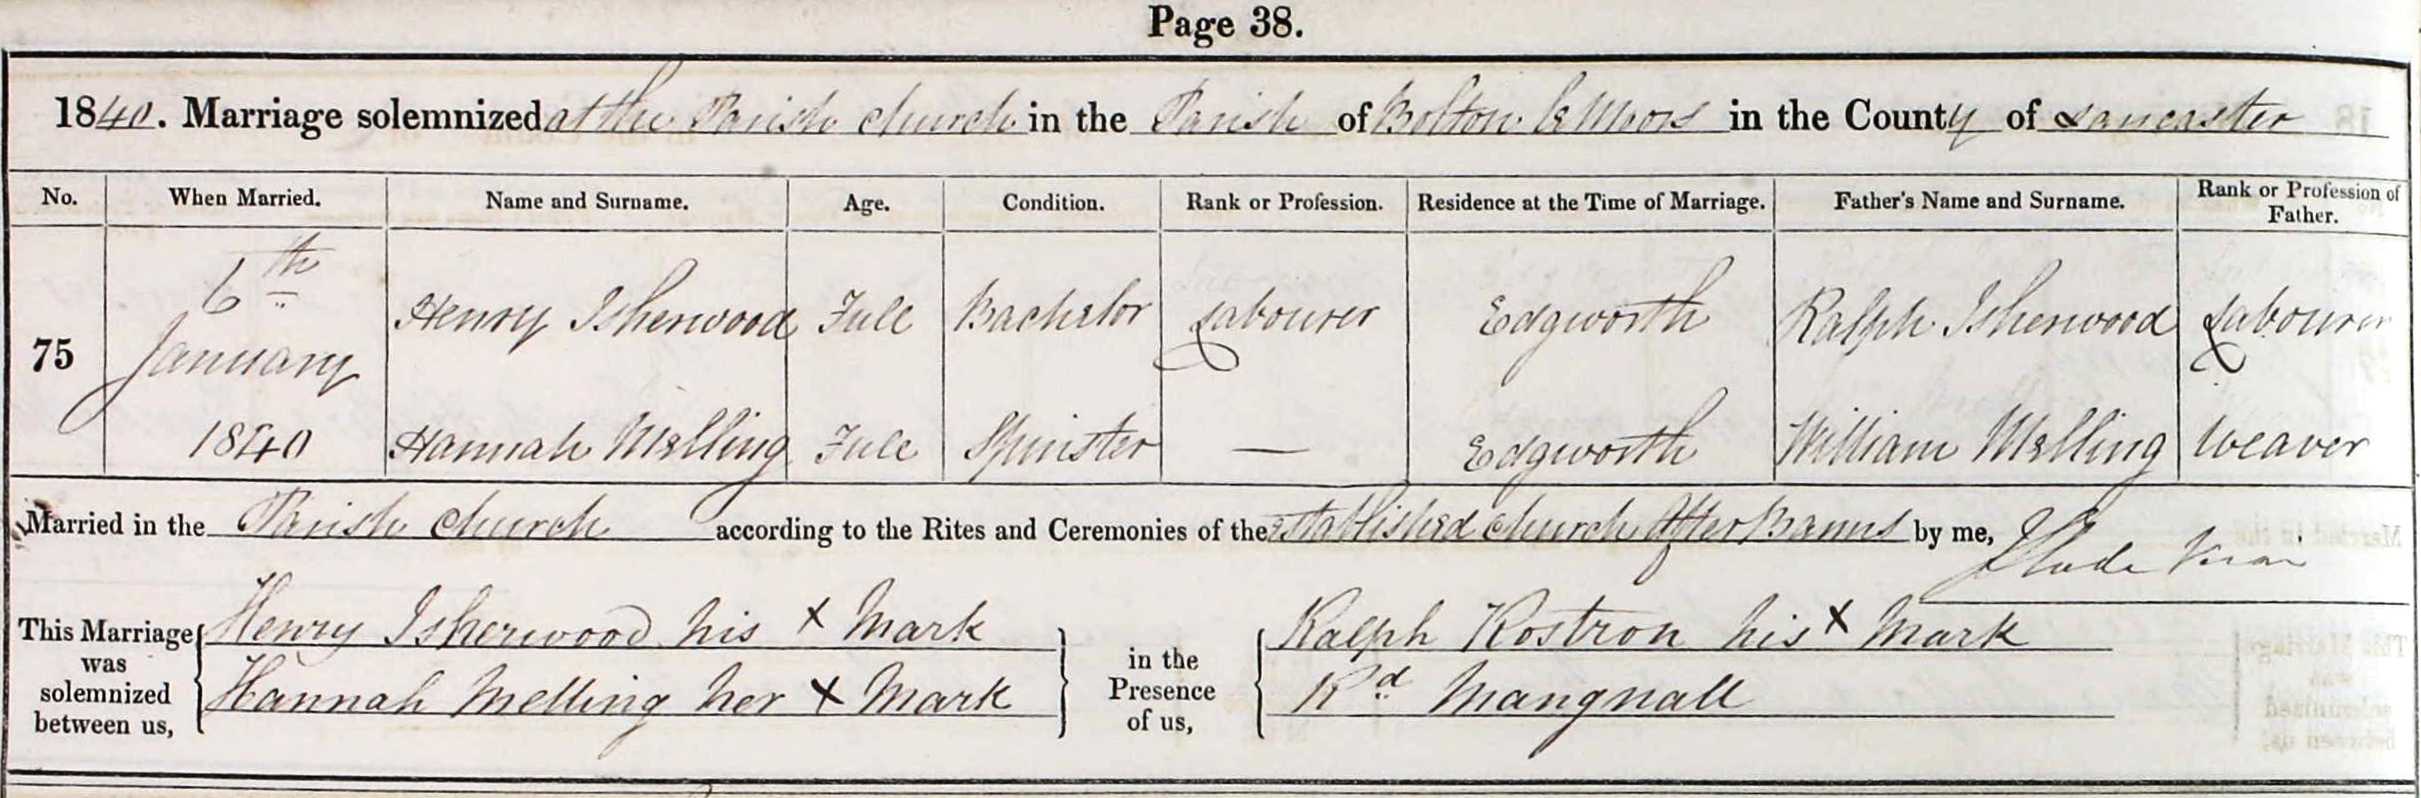 Page 38.
1840. Marriage solemnized at the Parish church in the Parish of Bolton le Moors in the County of Lancaster
No. When Married. Name and Surname. Age. Condition. Rank or Profession. Residence at the Time of Marriage. Father's Name and Surname. Rank or Profession of Father.
75 6th January 1840
Henry Isherwood Full Bachelor Labourer Edgworth Ralph Isherwood Labourer
Hannah Melling Full Spinster — Edgworth William Melling Weaver
Married in the Parish church according to the Rites and Ceremonies of the established church After Banns by me, J Slade
This Marriage was solemnized between us,
Henry Isherwood his X Mark
Hannah Melling her X Mark
in the Presence of us,
Ralph Rostron his X Mark
Rd Mangnall